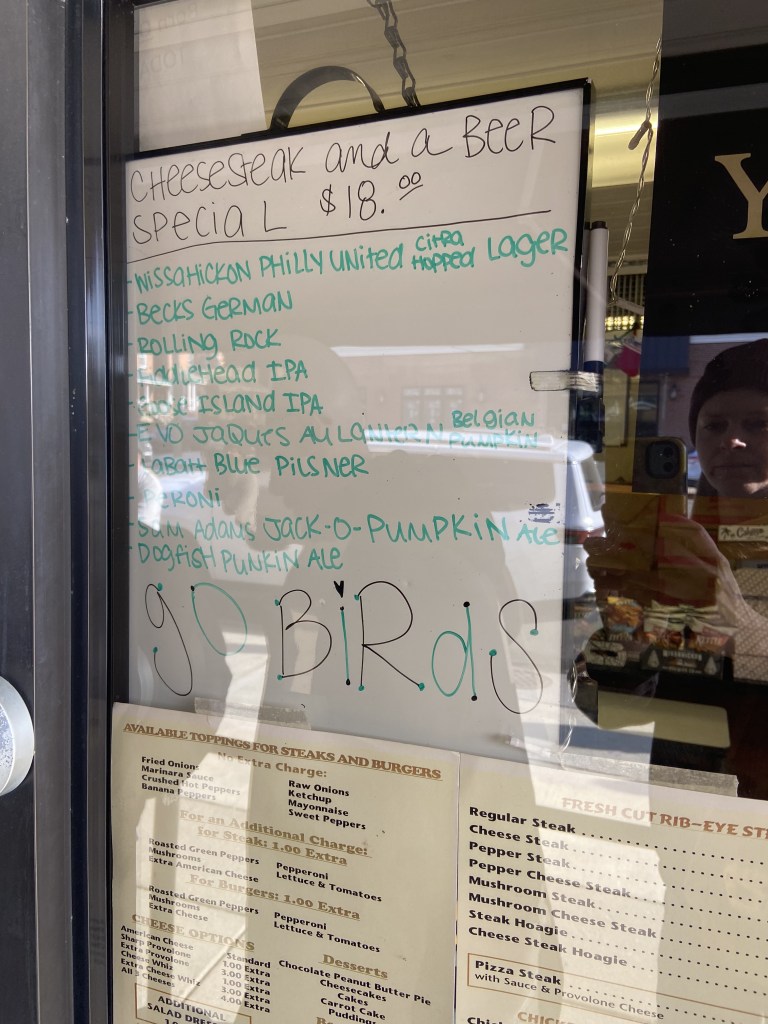 CHEESESTEAK and a BEER
SPECIAL $18.00
- WISSAHICKON PHILLY UNITED CITRA HOPPED LAGER
- BECKS GERMAN
- ROLLING ROCK
- FiddleHead IPA
- Goose ISLAND IPA
- EVO JAQUES AU LANTERN Belgian PUMPKIN
- LaBatt Blue PILSNER
- PERONI
- Sam Adams JACK-O-PUMPKIN Ale
- DOGFISH PUNKIN Ale
gO BiRdS
AVAILABLE TOPPINGS FOR STEAKS AND BURGERS
No Extra Charge:
Fried Onions
Marinara Sauce
Crushed Hot Peppers
Banana Peppers
Raw Onions
Ketchup
Mayonnaise
Sweet Peppers
For an Additional Charge:
for Steak: 1.00 Extra
Roasted Green Peppers
Mushrooms
Extra American Cheese
Pepperoni
Lettuce & Tomatoes
For Burgers: 1.00 Extra
Roasted Green Peppers
Mushrooms
Extra Cheese
Pepperoni
Lettuce & Tomatoes
CHEESE OPTIONS
American Cheese Standard
Sharp Provolone 1.00 Extra
Extra Provolone 3.00 Extra
Cheese Whiz 1.00 Extra
Extra Cheese Whiz 3.00 Extra
All 3 Cheeses 4.00 Extra
ADDITIONAL
SALAD
Desserts
Chocolate Peanut Butter Pie
Cheesecakes
Cakes
Carrot Cake
Pudding
FRESH CUT RIB-EYE
Regular Steak
Cheese Steak
Pepper Steak
Pepper Cheese Steak
Mushroom Steak
Mushroom Cheese Steak
Steak Hoagie
Cheese Steak Hoagie
Pizza Steak
with Sauce & Provolone Cheese
Y